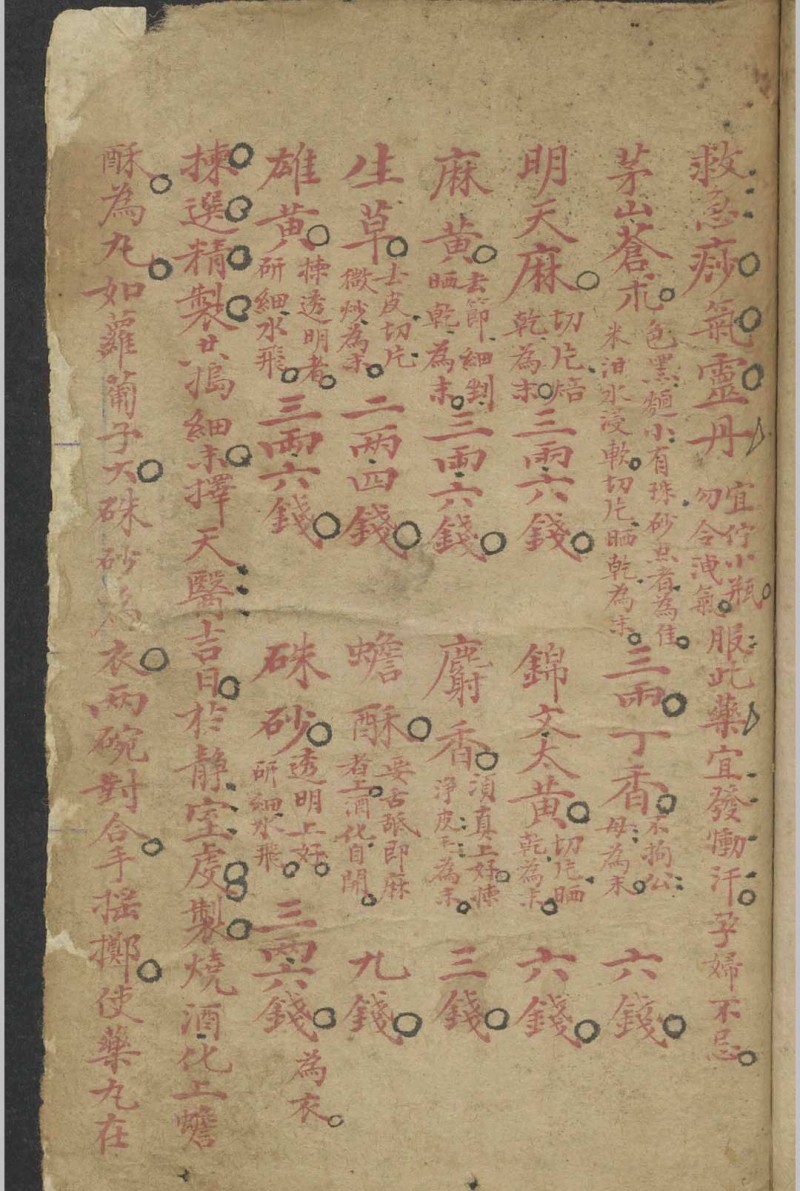 救急痧氣靈丹 宜佇小瓶勿令洩氣 服此藥宜發慟汗孕婦不忌
茅山蒼朮 色黑麵小有珠砂点者為佳米泔水浸軟切片晒乾為末 三兩 丁香 不拘公母為末 六錢
明天麻 切片焙乾為末 三兩六錢 錦文大黃 切片晒乾為末 六錢
麻黃 去節細剉晒乾為末 三兩六錢 麝香 須真上好揀淨皮毛為末 三錢
生草 去皮切片微炒為末 二兩四錢 蟾酥 要舌舐即麻者上酒化自開 九錢
雄黃 揀透明者研細水飛 三兩六錢 硃砂 透明上好研細水飛 三兩六錢 為衣
揀選精製共搗細末擇天醫吉日於靜室虔製燒酒化上蟾
酥為丸如蘿蔔子大硃砂為衣兩碗對合手摇擲使藥丸在